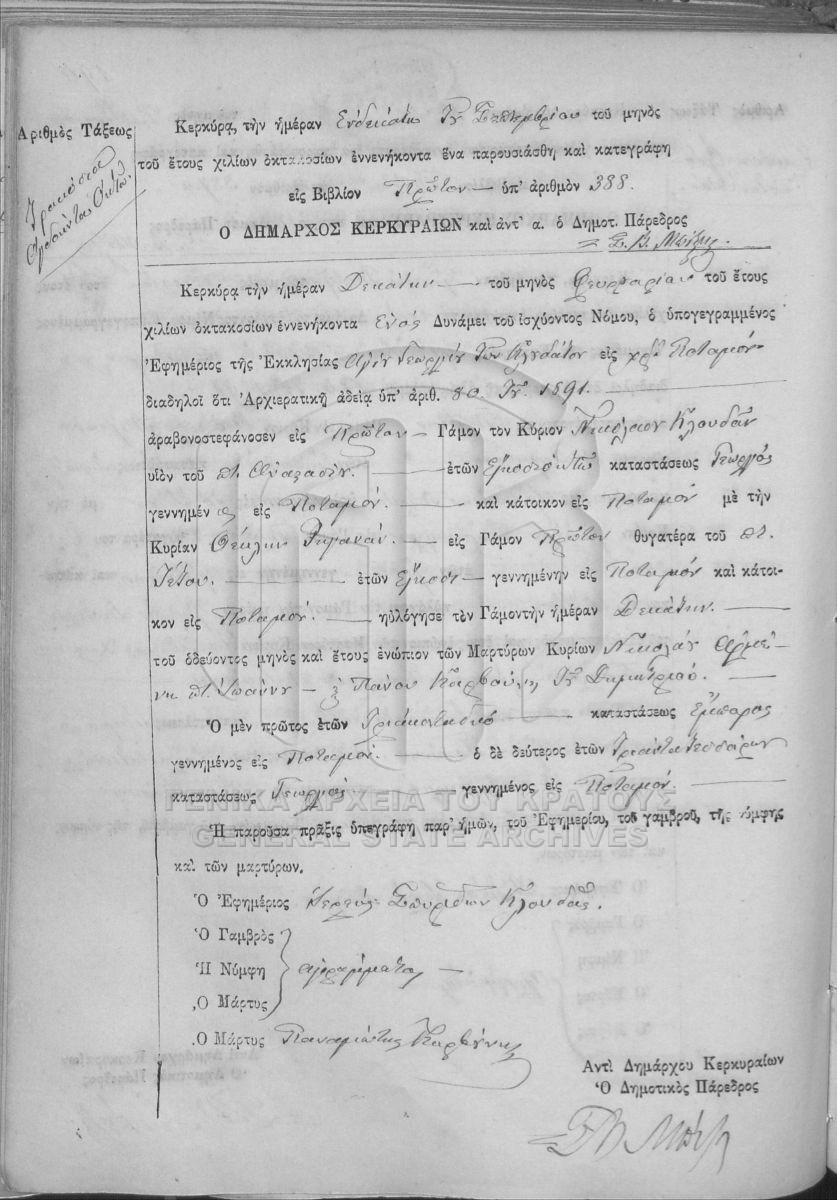 Ἀριθμὸς Τάξεως
Τριακόσια
Ὀγδοήντα Ὀκτώ.
Κερκύρᾳ, τὴν ἡμέραν Ἑνδεκάτην Σεπτεμβρίου τοῦ μηνὸς
τοῦ ἔτους χιλίων ὀκτακοσίων ἐννενήκοντα ἕνα παρουσιάσθη καὶ κατεγράφη
εἰς Βιβλίον Πρῶτον ὑπ' ἀριθμὸν 388.
Ο ΔΗΜΑΡΧΟΣ ΚΕΡΚΥΡΑΙΩΝ καὶ ἀντ' α. ὁ Δημοτ. Πάρεδρος
Κερκύρᾳ τὴν ἡμέραν Δεκάτην τοῦ μηνὸς Φευρουαρίου τοῦ ἔτους
χιλίων ὀκτακοσίων ἐννενήκοντα Ἑνὸς Δυνάμει τοῦ ἰσχύοντος Νόμου, ὁ ὑπογεγραμμένος
Ἐφημέριος τῆς Ἐκκλησίας Ἁγίου Γεωργίου τῶν Κλουδάτον εἰς Ποταμόν
διαδηλοῖ ὅτι Ἀρχιερατικῇ ἀδείᾳ ὑπ' ἀριθ. 80. 1891.
ἀραβονοστεφάνοσεν εἰς Πρῶτον Γάμον τον Κύριον Νικόλαον Κλουδᾶν
υἱὸν τοῦ π. Ἀναστασίου. ἐτῶν Εἴκοσιοκτὼ καταστάσεως Γεωργὸς
γεννημένος εἰς Ποταμόν. καὶ κάτοικον εἰς Ποταμόν μὲ τὴν
Κυρίαν Θέκλην εἰς Γάμον Πρῶτον θυγατέρα τοῦ π.
ἐτῶν Εἴκοσι γεννημένην εἰς Ποταμόν καὶ κάτοι-
κον εἰς Ποταμόν. ηὐλόγησε τὸν Γάμοντὴν ἡμέραν Δεκάτην.
τοῦ ὁδεύοντος μηνὸς καὶ ἔτους ἐνώπιον τῶν Μαρτύρων Κυρίων Νικολάου Ἀρμέ-
νη π. Ἰωάννου Πάνου Καρβούνη τοῦ Δημητρίου.
Ὁ μὲν πρῶτος ἐτῶν Τριακονταδύο καταστάσεως Ἔμπορος
γεννημένος εἰς Ποταμόν. ὁ δὲ δεύτερος ἐτῶν Τριαντατεσσάρων
καταστάσεως Γεωργὸς γεννημένος εἰς Ποταμόν.
ΓΕΝΙΚΑ ΑΡΧΕΙΑ ΤΟΥ ΚΡΑΤΟΥΣ
GENERAL STATE ARCHIVES
Ἡ παροῦσα πρᾶξις ὑπεγράφη παρ' ἡμῶν, τοῦ Ἐφημερίου, τοῦ γαμβροῦ, τῆς νύμφης
καὶ τῶν μαρτύρων.
Ὁ Ἐφημέριος Ἱερεὺς Σπυρίδων Κλουδᾶς.
Ὁ Γαμβρὸς
Ἡ Νύμφη ἀγράμματοι
Ὁ Μάρτυς
Ὁ Μάρτυς Παναγιώτης Καρβούνης
Ἀντὶ Δημάρχου Κερκυραίων
Ὁ Δημοτικὸς Πάρεδρος